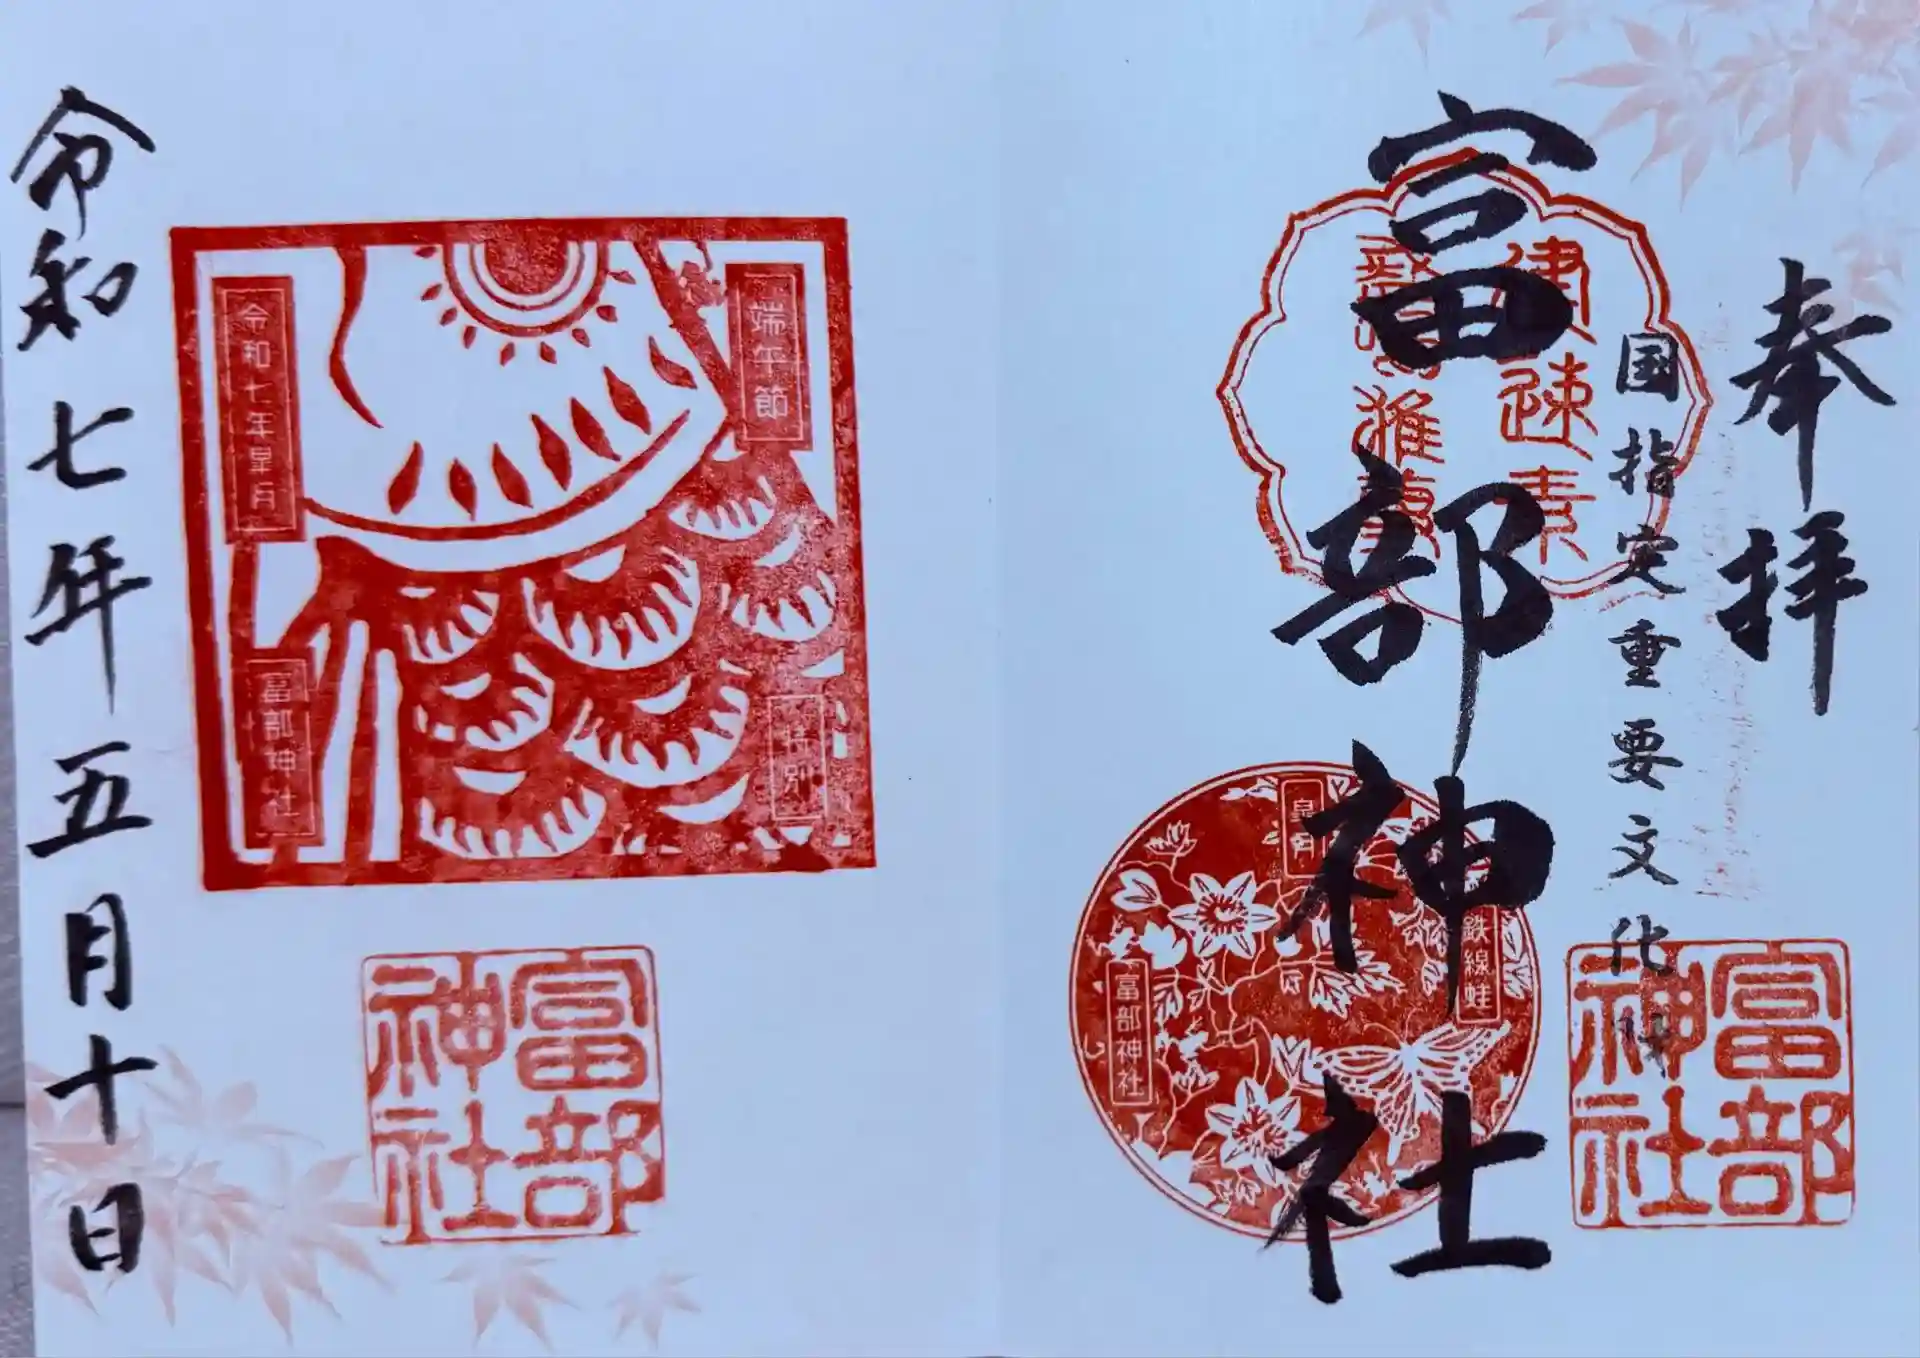 奉拝
国指定重要文化財
富部神社
建速素
富部神社
皐月
富部神社
端午節
特別
令和七年皐月
富部神社
富部神社
令和七年五月十日